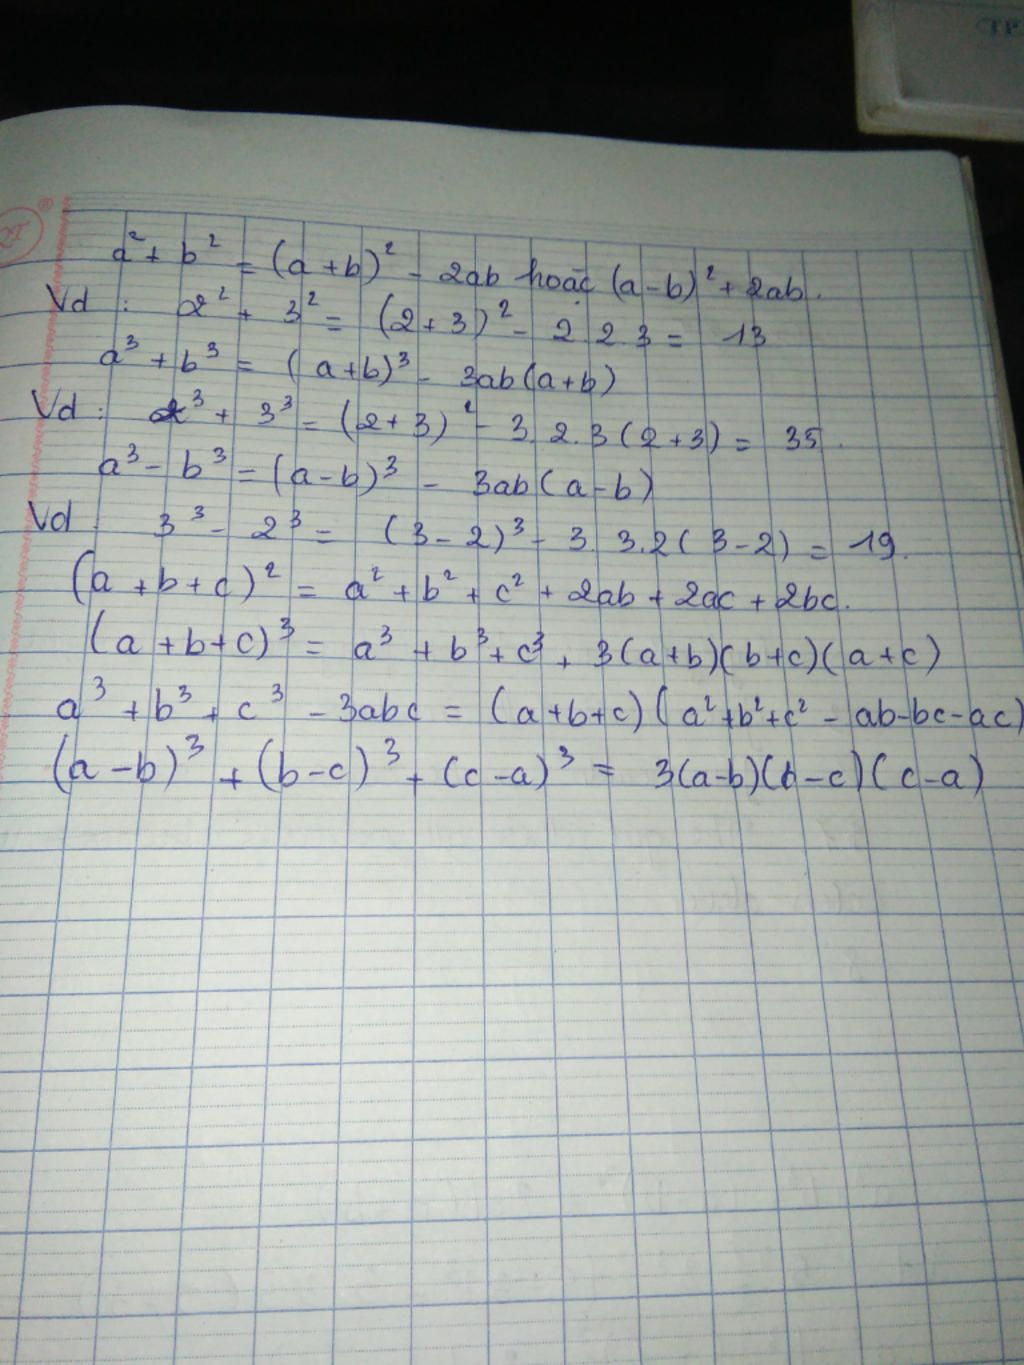 TP
a² + b² = (a+b)² - 2ab hoặc (a-b)² + 2ab.
Vd : 2² + 3² = (2+3)² - 2 2 3 = 13
a³ + b³ = (a+b)³ - 3ab(a+b)
Vd : 2³ + 3³ = (2+3)² - 3. 2. 3 (2+3) = 35.
a³ - b³ = (a-b)³ - 3ab(a-b)
Vd 3³ - 2³ = (3-2)³ - 3. 3.2 (3-2) = 19.
(a+b+c)² = a² + b² + c² + 2ab + 2ac + 2bc.
(a+b+c)³ = a³ + b³ + c³ + 3(a+b)(b+c)(a+c)
a³ + b³ + c³ - 3abc = (a+b+c)(a²+b²+c² - ab-bc-ac)
(a-b)³ + (b-c)³ + (c-a)³ = 3(a-b)(b-c)(c-a)